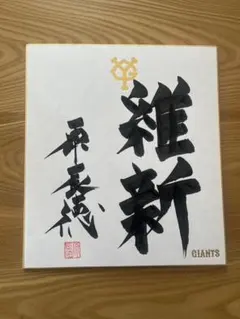 維新
原辰徳
GIANTS